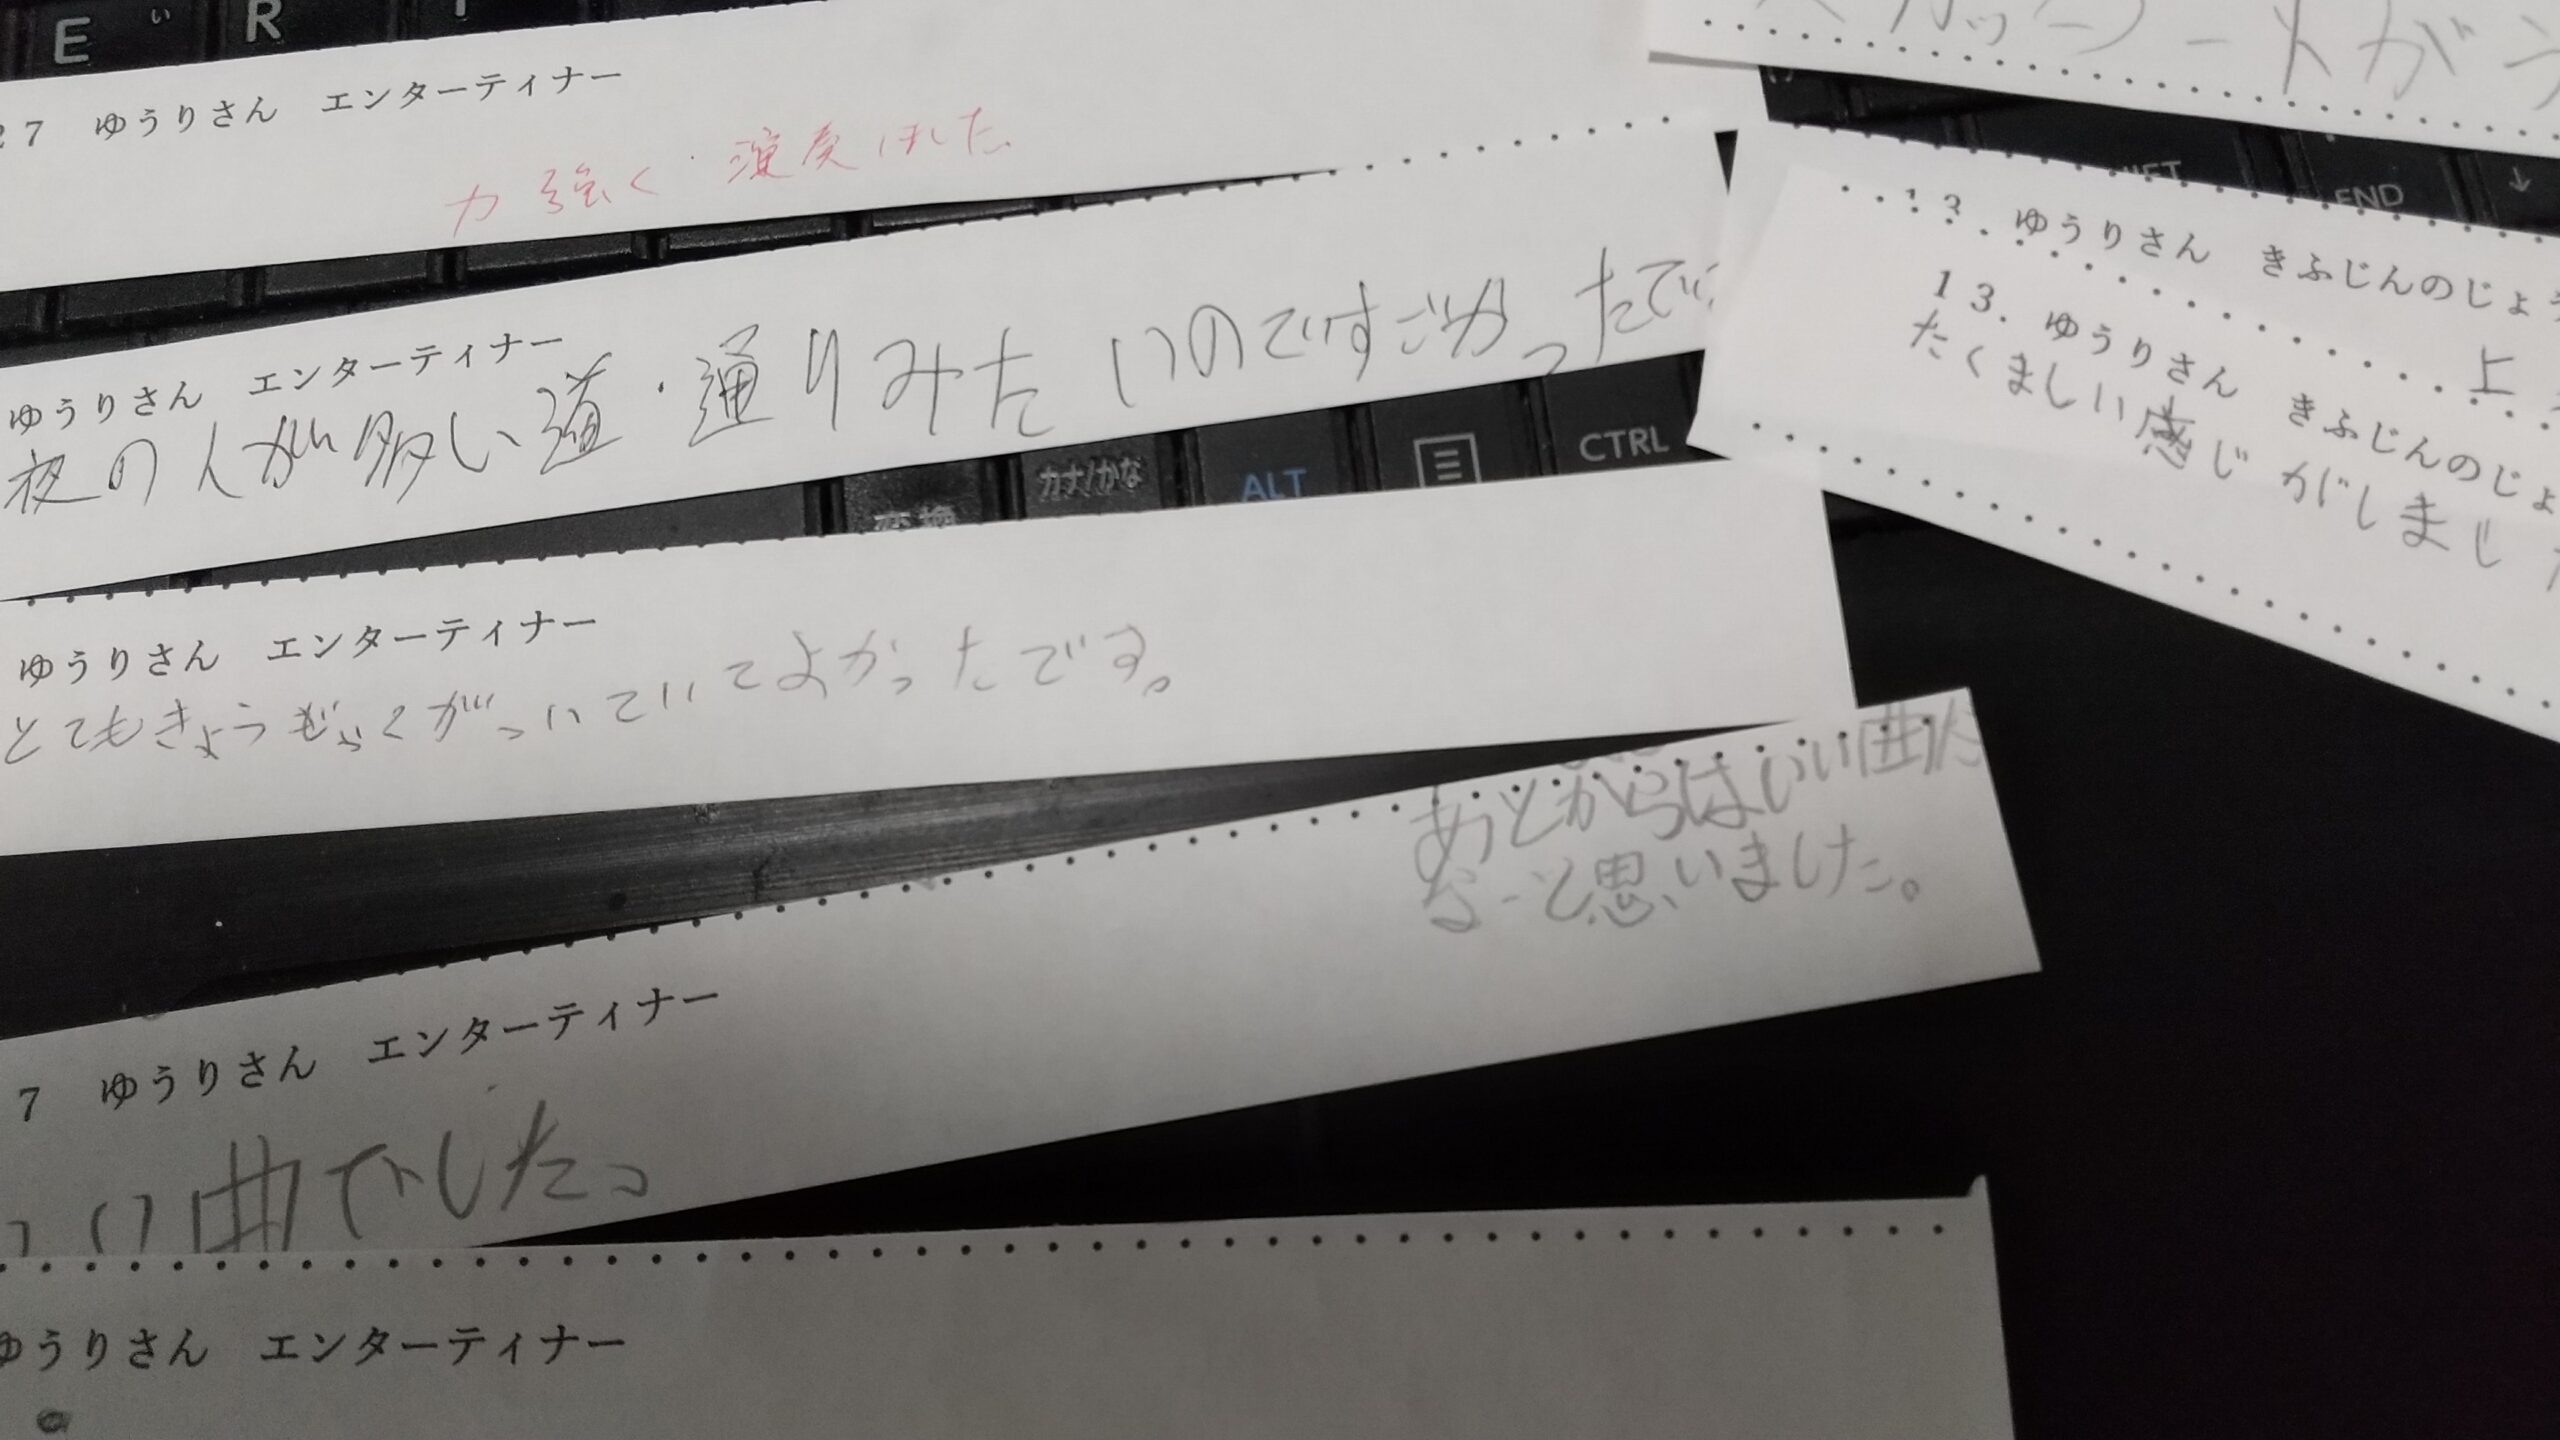 E い R
27 ゆうりさん エンターティナー
力強く演奏
ゆうりさん エンターティナー
夜の人が多い道・通りみたいのですごかったで
カナ/かな ALT CTRL
END
13. ゆうりさん きふじんのじょ
上
13. ゆうりさん きふじんのじょ
たくましい感じがしまし
ゆうりさん エンターティナー
がついていてよかったです。
あとからはいい曲だ
なーと思いました。
7 ゆうりさん エンターティナー
いい曲でした。
ゆうりさん エンターティナー